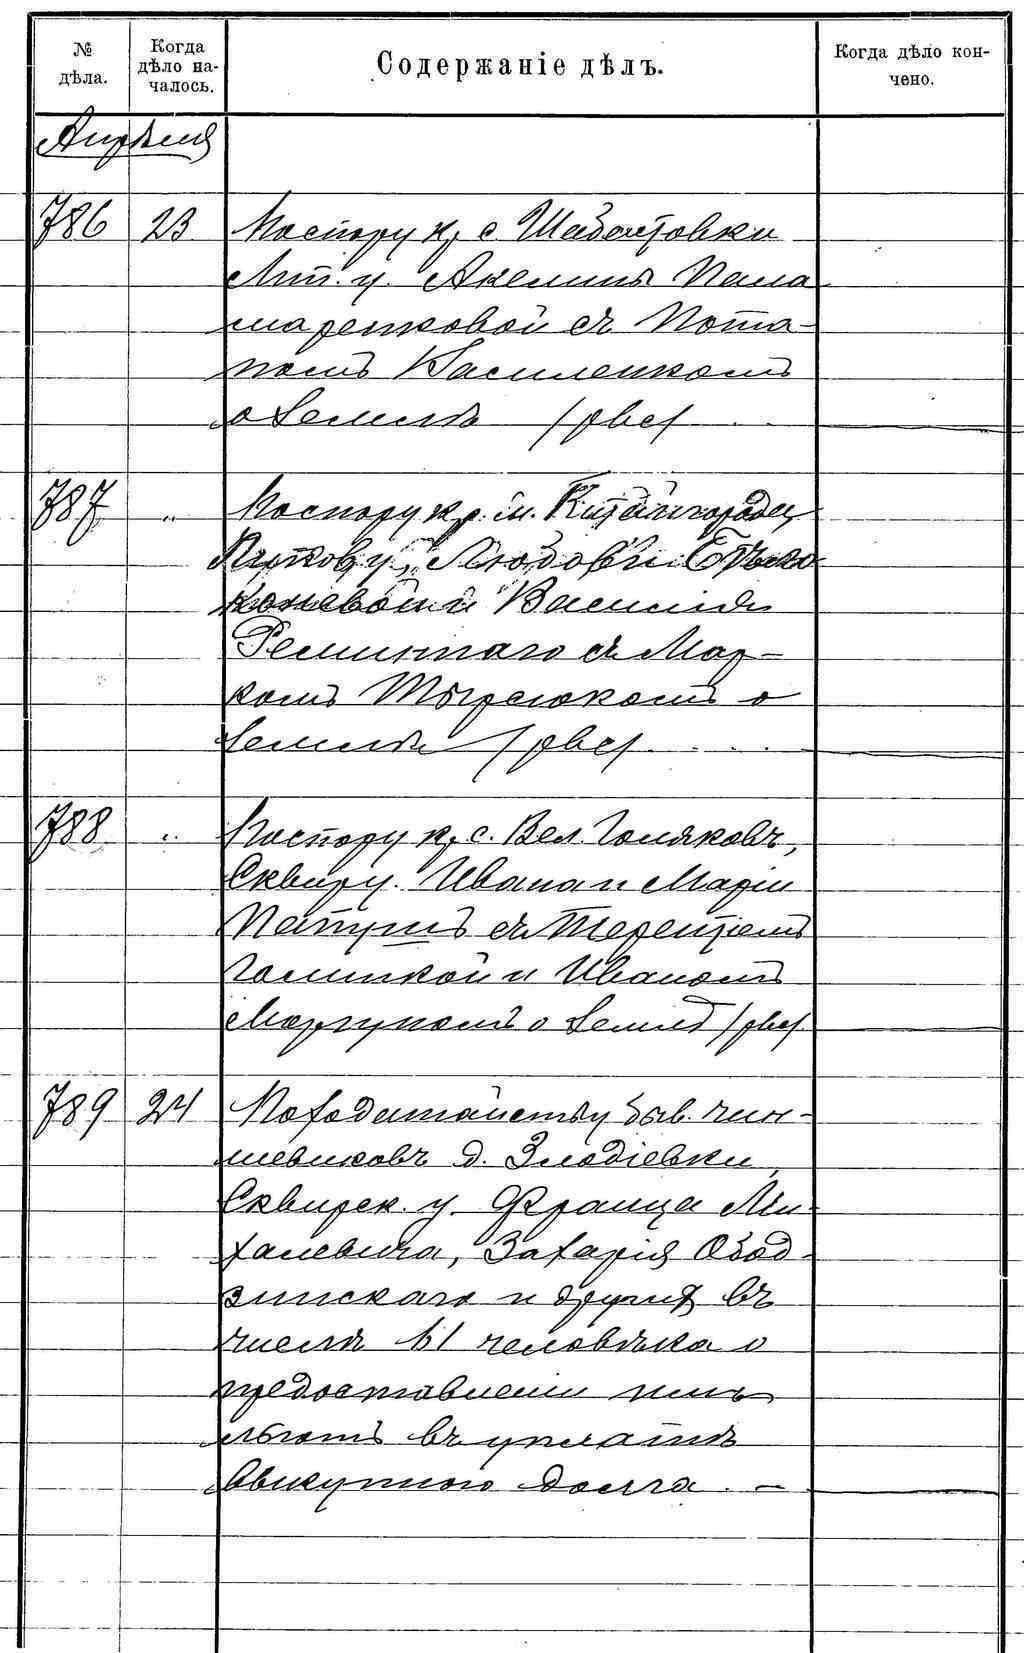 № дѣла.
Когда дѣло началось.
Содержаніе дѣлъ.
Когда дѣло кончено.
Апрѣля
786 23 По спору кр. с. Шабастовки
Лип. у. Акелины Пала
маренковой съ Пота-
помъ Василенкомъ
о землѣ /рвс/
787 " По спору кр. м. Китайгорода
Любови
Василія
съ Мар-
комъ о
землѣ /рвс/
788 " По спору кр. с. Вел. Гоняковъ,
Сквир у. Ивана и Маріи
съ Терентіемъ
и Иваномъ
о землѣ /рвс/
789 24 По ходатайству быв. чин-
шевиковъ д. Злодіевки,
Сквирск. у. Франца Ми-
халевича, Захарія Обод-
зинскаго и другихъ въ
числѣ 61 человѣка о
предоставленіи имъ
льготъ въ уплатѣ
выкупного долга. –